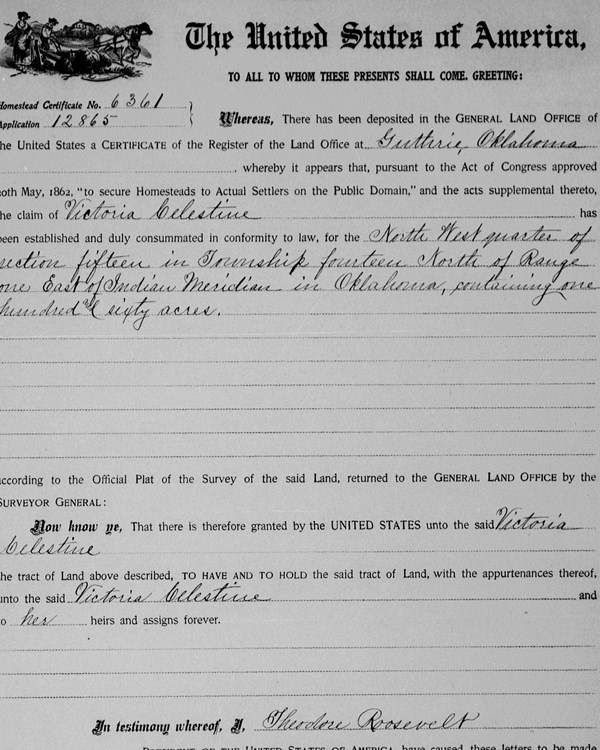 The United States of America,
TO ALL TO WHOM THESE PRESENTS SHALL COME, GREETING:
Homestead Certificate No. 6361
Application 12865
Whereas, There has been deposited in the GENERAL LAND OFFICE of
the United States a CERTIFICATE of the Register of the Land Office at Guthrie, Oklahoma
, whereby it appears that, pursuant to the Act of Congress approved
20th May, 1862, "to secure Homesteads to Actual Settlers on the Public Domain," and the acts supplemental thereto,
the claim of Victoria Celestine has
been established and duly consummated in conformity to law, for the North West quarter of
section fifteen in Township fourteen North of Range
one East of Indian Meridian in Oklahoma, containing one
hundred and sixty acres.
according to the Official Plat of the Survey of the said Land, returned to the GENERAL LAND OFFICE by the
SURVEYOR GENERAL:
Now know ye, That there is therefore granted by the UNITED STATES unto the said Victoria
Celestine
the tract of Land above described, TO HAVE AND TO HOLD the said tract of Land, with the appurtenances thereof,
unto the said Victoria Celestine and
to her heirs and assigns forever.
In testimony whereof, I, Theodore Roosevelt
PRESIDENT OF THE UNITED STATES OF AMERICA, have caused these letters to be made